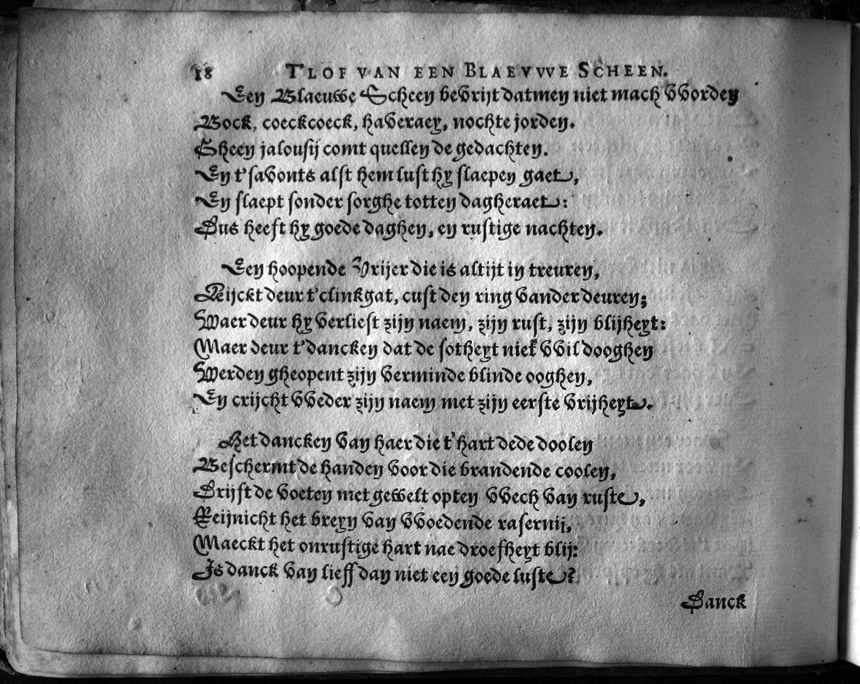 18 T'LOF VAN EEN BLAEVWE SCHEEN.
Een Blaeuwe Scheen bevrijt datmen niet mach vvorden
Bock, coeckcoeck, haveraen, nochte jorden.
Gheen jalousij comt quellen de gedachten.
En t'savonts alst hem lust hy slaepen gaet,
En slaept sonder sorghe totten dagheraet:
Dus heeft hy goede daghen, en rustige nachten.
Een hoopende Vrijer die is altijt in treuren,
Kijckt deur t'clinkgat, cust den ring vander deuren;
Waer deur hy verliest zijn naem, zijn rust, zijn blijheyt:
Maer deur t'dancken dat de sotheyt niet vvil dooghen
Werden gheopent zijn verminde blinde ooghen,
En crijcht vveder zijn naem met zijn eerste vrijheyt.
Het dancken van haer die t'hart dede doolen
Beschermt de handen voor die brandende coolen,
Drijft de voeten met gewelt opten vvech van ruste,
Reijnicht het breyn van vvoedende rasernij,
Maeckt het onrustige hart nae droefheyt blij:
Is danck van lieff dan niet een goede luste?
Danck